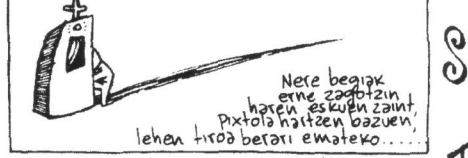 Nere begiak
erne zagotzin
haren eskuen zaint,
Pixtola hartzen bazuen,
lehen tiroa berari emateko......